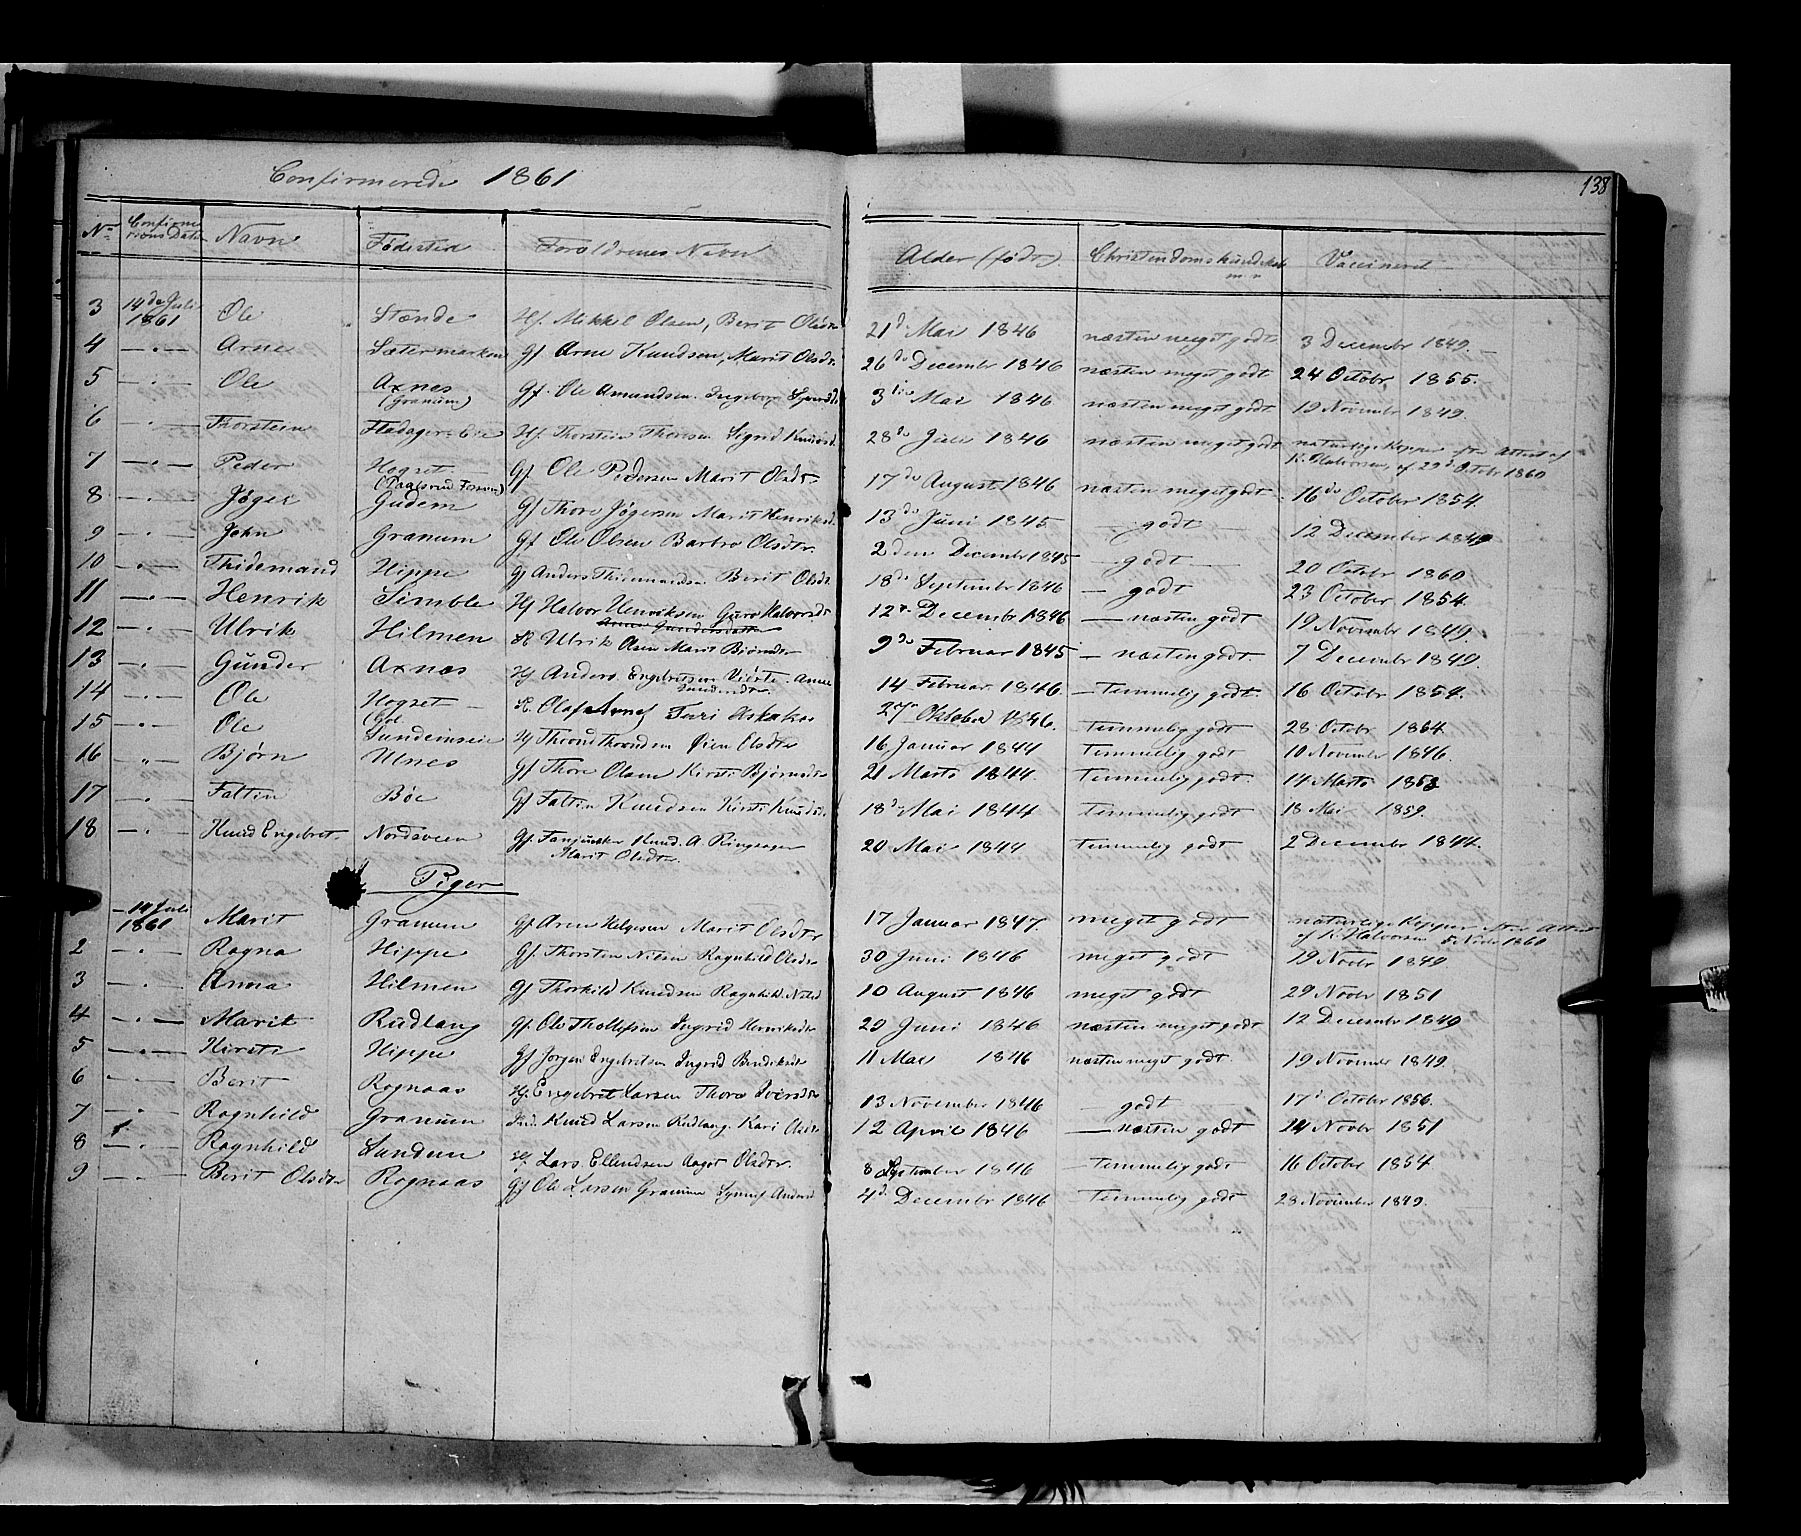 Confirmerede 1861
138
No Confirmations Datum Navn Fødested Forældrenes Navne Alder (født) Christendomskundskab m. v. Vaccineret
3 14de Juli 1861 Ole Stende Hf. Mikkel Olsen, Berit Olsdtr 21d Mai 1846 næsten meget godt 3 December 1849.
4 — " — Arne Sætermarken Gf Arne Knudsen, Marit Olsdtr. 26de December 1846 næsten meget godt 24 Octobr. 1855.
5 — " — Ole Axnes (Granum) Gf. Ole Amundsen. Ingeborg 3die Mai 1846 næsten meget godt 19 November 1849.
6 — " — Thorstein Fladager Eie Hf. Thorstein Thoresen Sigrid Knudsd. 28de Juli 1846 næsten meget godt naturlige Kopper efter Attest af K. Halvorsen af 29d Octobr 1860
7 — " — Peder Hogset Gf Ole Pedersen Marit Olsdtr. 17de August 1846 næsten meget godt 16de October 1854.
8 — " — Jøger Gudem Gf Thore Jøgersen Marit Henriksd. 13de Juni 1845 — godt — 12 December 1849
9 — " — John Granum Gf Ole Olsen Barbro Olsdtr. 2den December 1845 — godt — 20 Octobr 1860
10 — " — Thidemand Hippe Gf Anders Thidemandsen Berit Olsdr. 18de September 1846 — godt 23 October 1854.
11 — " — Henrik Simble Hf Halvor Henriksen Guro Halvorsdtr 12te December 1846 — næsten godt 19 Novembr 1849.
12 — " — Ulrik Hilmen S. Ulrik Olsen Marit Bjørnsdtr 9de Februar 1845 — næsten godt. 7 December 1849.
13 — " — Gunder Axnes Hf Anders Engebretsen Anne Gundersdtr. 14 Februar 1846 — temmelig godt. 16 Octobr 1854.
14 — " — Ole Hogset — S. Olaf Turi 27de Oktober 1846. temmelig godt 28 Octobr 1854
15 — " — Ole Sundeimseie Hf Thrond Throndsen Olsdtr 16 Januar 1844 temmelig godt 10 November 1846.
16 — " — Bjørn Ulnes Gf Thore Olsen Kirsti Bjørnsdtr 21 Marts 1844. temmelig godt 14 Marts 1853
17 — " — Faltin Bøe Gf Faltin Knudsen Kirsti Knudsd. 18de Mai 1844 temmelig godt 18 Mai 1859.
18 — " — Knud Engebret Nordsveen Gf. Fanjunker Knud A. Ringsager Marit Olsdtr. 20 Mai 1844 temmelig godt 2 December 1847.
Piger
— 14 Juli 1861 Marit Granum Gf. Aren Helgesen Marit Olsdtr 17 Januar 1847. meget godt naturlige Kopper efter Attest af K. Halvorsen 1860
2 — " — Ragna Hippe Gf. Thorsten Nilsen Ragnhild Olsdtr 30 Juni 1846 meget godt 19 Novbr 1849.
3 — " — Anna Hilmen Gf Thorkild Knudsen Ragnhild Nilsd 10 August 1846 meget godt 29 Novbr 1851
4 — " — Marit Rudlang Gf. Ole Thollefsen Ingrid Henriksdtr 20 Juni 1846 næsten meget godt 12 December 1849
5 — " — Kirsti Hippe Gf Jørgen Engebretsen Ingrid Bendiksdr 11 Mai 1846 næsten meget godt 19 November 1849.
6 — " — Berit Rognaas Hf. Engebret Larsen Thora Iversdtr 13 November 1846 godt 17de October 1856.
7 — " — Ragnhild Granum Ind. Knud Larsen Rudlang. Kari Olsdtr 12 April 1846 — næsten godt 24 Novbr 1851
8 — " — Ragnhild Sundem Hf. Lars Ellendsen Aagot Olsdtr. 8 September 1846 — temmelig godt 16 October 1854
9 — " — Berit Olsdtr Rognaas Gf Ole Larsen Granum Andersd 4de December 1846 temmelig godt 28 November 1849.